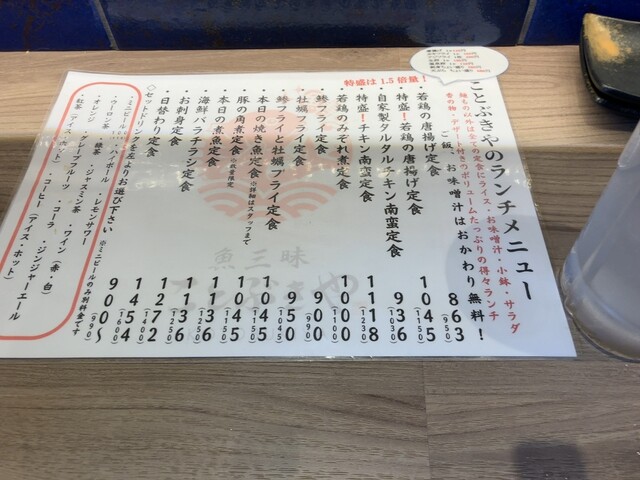 ことぶきやのランチメニュー
麺もの以外は全ての定食にライス・お味噌汁・小鉢・サラダ
香の物・デザート付きのボリュームたっぷりの得々ランチ
ご飯、お味噌汁はおかわり無料!
特盛は1.5倍量!
若鶏の唐揚げ定食 863 (950)
特盛!若鶏の唐揚げ定食 1045 (1150)
自家製タルタルチキン南蛮定食 936 (1030)
特盛!チキン南蛮定食 1118 (1230)
若鶏のみぞれ煮定食 1000 (1100)
鯵フライ定食 900 (990)
牡蠣フライ定食 900 (990)
鯵フライと牡蠣フライ定食 950 (1045)
本日の焼き魚定食 ※詳細はスタッフまで 1045 (1150)
豚の角煮定食 ※数量限定 1045 (1150)
本日の煮魚定食 1136 (1250)
海鮮バラチラシ定食 1136 (1250)
お刺身定食 1272 (1400)
日替わり定食 1454 (1600)
900〜 (990)
◇セットドリンクを左よりお選び下さい ※ミニビールのみ別料金です
・ミニビール ・ハイボール ・レモンサワー
・ウーロン茶 ・緑茶 ・ジャスミン茶 ・ワイン(赤・白)
・オレンジ ・グレープフルーツ ・コーラ ・ジンジャーエール
・紅茶(アイス・ホット) ・コーヒー(アイス・ホット)
魚三昧
ことぶきや